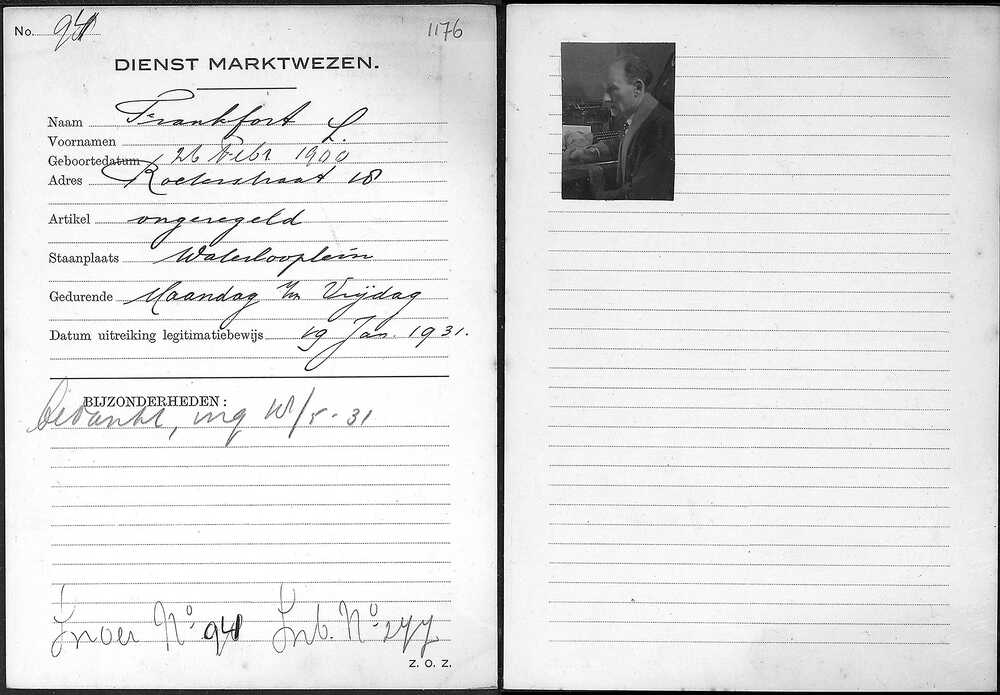 No. 941
1176
DIENST MARKTWEZEN.
Naam Frankfort L.
Voornamen
Geboortedatum 26 Febr 1900
Adres Roeterstraat 18
Artikel ongeregeld
Staanplaats Waterlooplein
Gedurende Maandag t/m Vrijdag
Datum uitreiking legitimatiebewijs 19 Jan. 1931.
BIJZONDERHEDEN:
bedankt, ing 18/5-31
No. 941 No. 277
Z. O. Z.